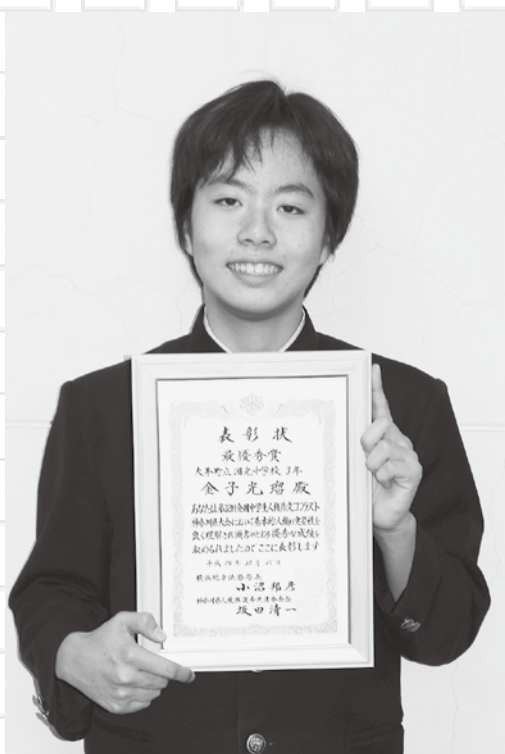 表彰状
最優秀賞
大井町立湘光中学校 3年
金子光瑠殿
あなたは第33回全国中学生人権作文コンテスト
神奈川県大会において基本的人権の重要性を
良く理解され 優秀な成績を
収められましたのでここに表彰します
平成
横浜地方法務局長
小沼邦彦
神奈川県人権擁護委員連合会長
坂田清一